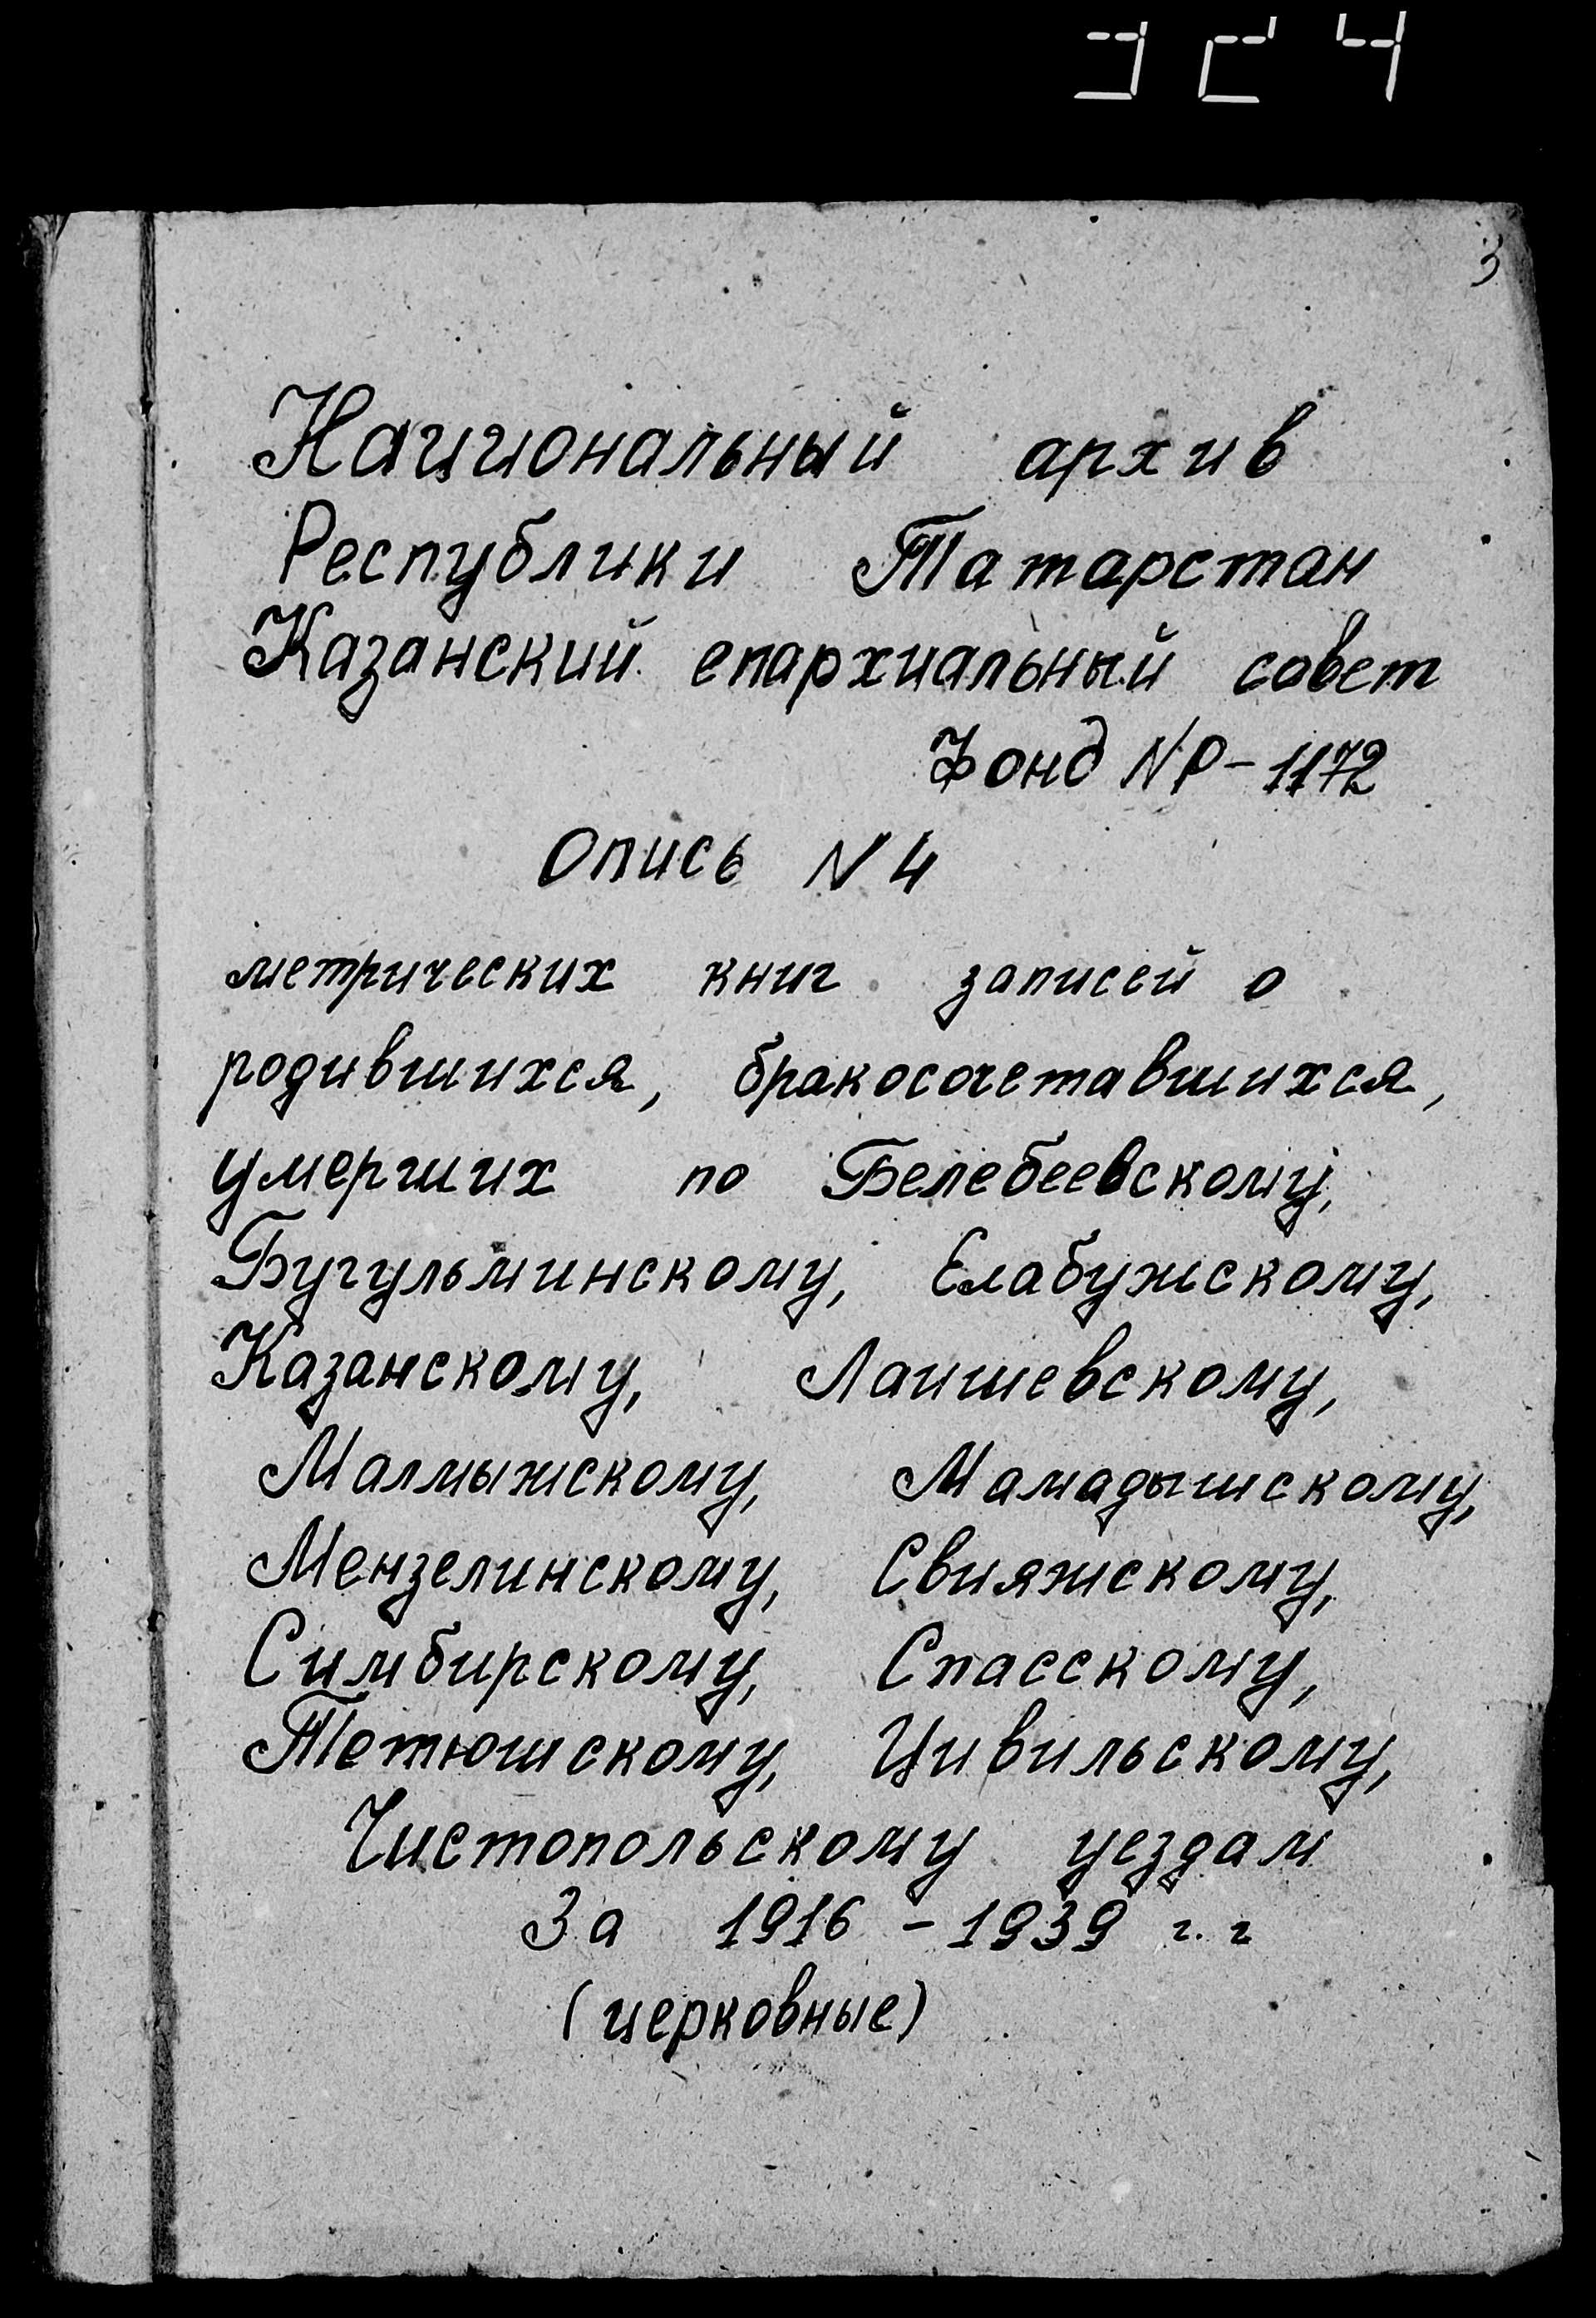 324
3
Национальный архив
Республики Татарстан
Казанский епархиальный совет
Фонд № Р-1172
Опись № 4
метрических книг записей о
родившихся, бракосочетавшихся,
умерших по Белебеевскому,
Бугульминскому, Елабужскому,
Казанскому, Лаишевскому,
Малмыжскому, Мамадышскому,
Мензелинскому, Свияжскому,
Симбирскому, Спасскому,
Тетюшскому, Цивильскому,
Чистопольскому уездам
За 1916 - 1939 г. г
(церковные)